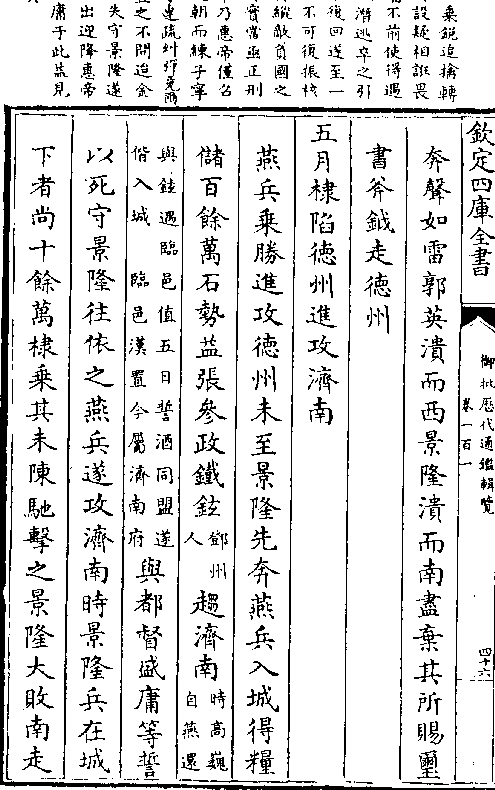 乘銳追擒轉
設疑相誑畏
不前使得遇
潛逃卒之引
復回遂至一
不可復振核
縱敵負國之
實當亟正刑
乃惠帝僅名
朝而練子寧
連疏糾彈竟爾
之不問迨金
失守景隆遂
出迎降惠帝
庸于此益見
欽定四庫全書
御批歷代通鑑輯覽
卷一百一
四十六
奔聲如雷郭英潰而西景隆潰而南盡棄其所賜璽
書斧鉞走德州
五月棣陷德州進攻濟南
燕兵乘勝進攻德州未至景隆先奔燕兵入城得糧
儲百餘萬石勢益張參政鐵鉉鄧州人趨濟南時高巍自燕還
與鉉遇臨邑值五日誓酒同盟遂偕入城臨邑漢置今屬濟南府與都督盛庸等誓
以死守景隆往依之燕兵遂攻濟南時景隆兵在城
下者尚十餘萬棣乘其未陳馳擊之景隆大敗南走